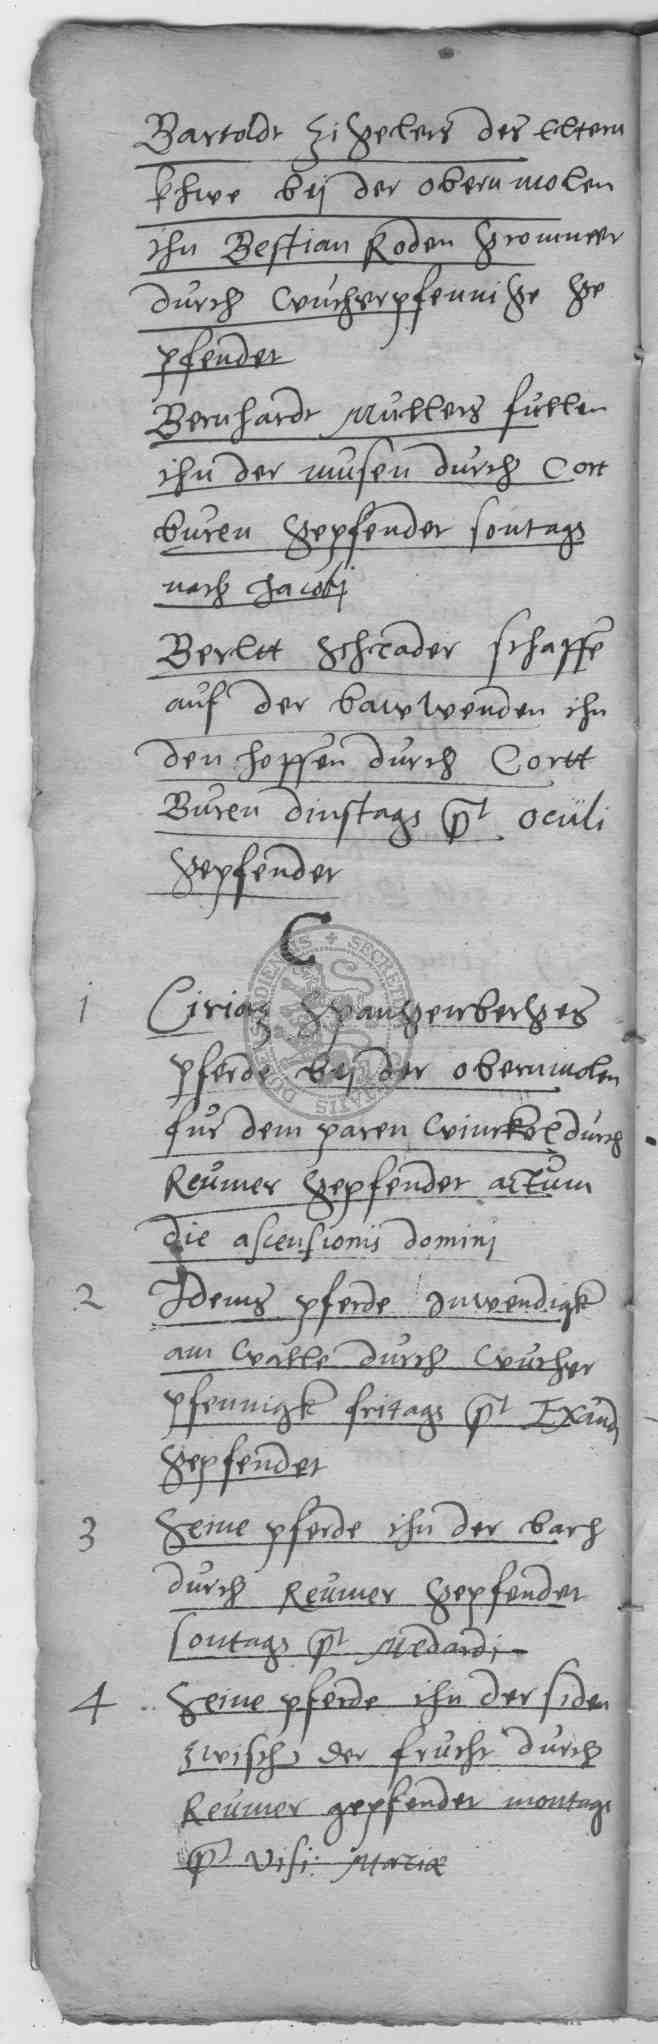 Bartoldt Zigelers des Eltern
khwe bej der obernmolen
ihn Bestian Roden Grommer
durch Wucherpfennige ge
pfendet
Bernhardt Mullers fullen
ihn der musen durch Cort
buren gepfendet sontags
nach Jacobj
Berltt Schrader schaffe
auf der bawwenden ihn
den hopffen durch Cortt
Buren dinstags pt oculi
gepfendet
C
1 Ciriax Spangenberges
pferde bej der obernmolen
fur dem paren Winckel durch
Reumer gepfendet actum
die ascensionis dominj
2 Idems pferde Inwendigk
am Walle durch Wucher
pfennigk fritags pt Exaudj
gepfendet
3 Seine pferde ihn der bach
durch Reumer gepfendet
sontags pt Medardj
4 Seine pferde ihn der siden
zwisch der frucht durch
Reumer gepfendet montags
pt visi: Mariæ